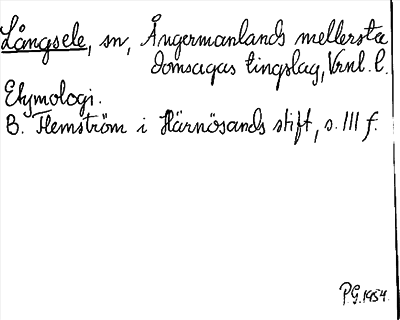 Långsele, sn, Ångermanlands mellersta
domsagas tingslag, Vrnl. l.
Etymologi.
B. Flemström i Härnösands stift, s. 111 f.
P.G. 1954.